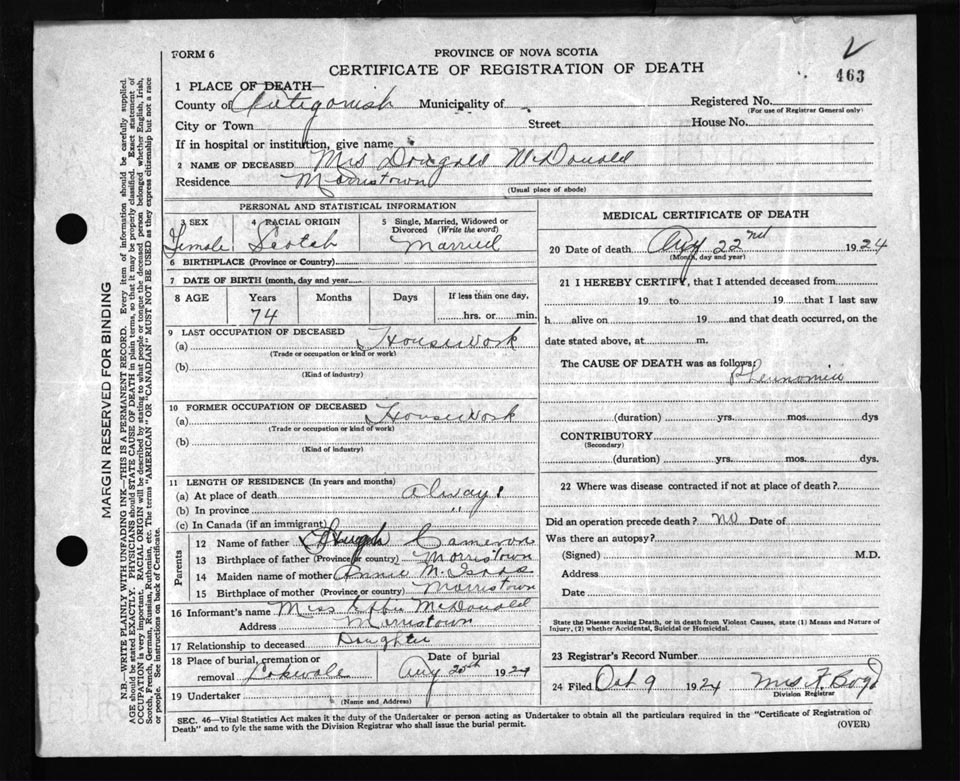 FORM 6
PROVINCE OF NOVA SCOTIA
CERTIFICATE OF REGISTRATION OF DEATH
463
1 PLACE OF DEATH—
County of Antigonish Municipality of
Registered No.
(For use of Registrar General only)
City or Town Street House No.
If in hospital or institution, give name
2 NAME OF DECEASED Mrs Dougald McDonald
Residence Morristown
(Usual place of abode)
PERSONAL AND STATISTICAL INFORMATION
3 SEX 4 RACIAL ORIGIN 5 Single, Married, Widowed or Divorced (Write the word)
Female Scotch Married
6 BIRTHPLACE (Province or Country)
7 DATE OF BIRTH (month, day and year)
8 AGE Years Months Days If less than one day,
74 hrs. or min.
9 LAST OCCUPATION OF DECEASED
(a) Housework
(Trade or occupation or kind or work)
(b)
(Kind of industry)
10 FORMER OCCUPATION OF DECEASED
(a) Housework
(Trade or occupation or kind of work)
(b)
(Kind of industry)
11 LENGTH OF RESIDENCE (In years and months)
(a) At place of death Always
(b) In province "
(c) In Canada (if an immigrant)
Parents
12 Name of father Hugh Cameron
13 Birthplace of father (Province or country) Morristown
14 Maiden name of mother Annie McIsaac
15 Birthplace of mother (Province or country) Morristown
16 Informant's name Miss Effie McDonald
Address Morristown
17 Relationship to deceased Daughter
18 Place of burial, cremation or removal Lakevale
Date of burial Aug 25th 1924
19 Undertaker
(Name and Address)
MEDICAL CERTIFICATE OF DEATH
20 Date of death Aug 22nd 1924
(Month, day and year)
21 I HEREBY CERTIFY, that I attended deceased from
19 to 19 that I last saw
h alive on 19 and that death occurred, on
date stated above, at m.
The CAUSE OF DEATH was as follows:
(duration) yrs. mos. dys
CONTRIBUTORY
(Secondary)
(duration) yrs. mos. dys.
22 Where was disease contracted if not at place of death?
Did an operation precede death? no Date of
Was there an autopsy?
(Signed) M.D.
Address
Date
State the Disease causing Death, or in death from Violent Causes, state (1) Means and Nature of
Injury, (2) whether Accidental, Suicidal or Homicidal.
23 Registrar's Record Number
24 Filed Oct 9 1924 Mrs F. Boyd
Division Registrar
SEC. 46—Vital Statistics Act makes it the duty of the Undertaker or person acting as Undertaker to obtain all the particulars required in the "Certificate of Registration of
Death" and to fyle the same with the Division Registrar who shall issue the burial permit.
(OVER)
MARGIN RESERVED FOR BINDING
N.B.—WRITE PLAINLY WITH UNFADING INK—THIS IS A PERMANENT RECORD. Every item of information should be carefully supplied.
AGE should be stated EXACTLY. PHYSICIANS should STATE CAUSE OF DEATH in plain terms, so that it may be properly classified. Exact statement of
OCCUPATION is very important. RACIAL ORIGIN will be described by stating to what people or tongue the deceased person belonged whether English, Irish,
Scotch, French, German, Russian, Ruthenian, etc. The terms "AMERICAN" OR "CANADIAN" MUST NOT BE USED as they express citizenship but not a race
or people. See instructions on back of Certificate.